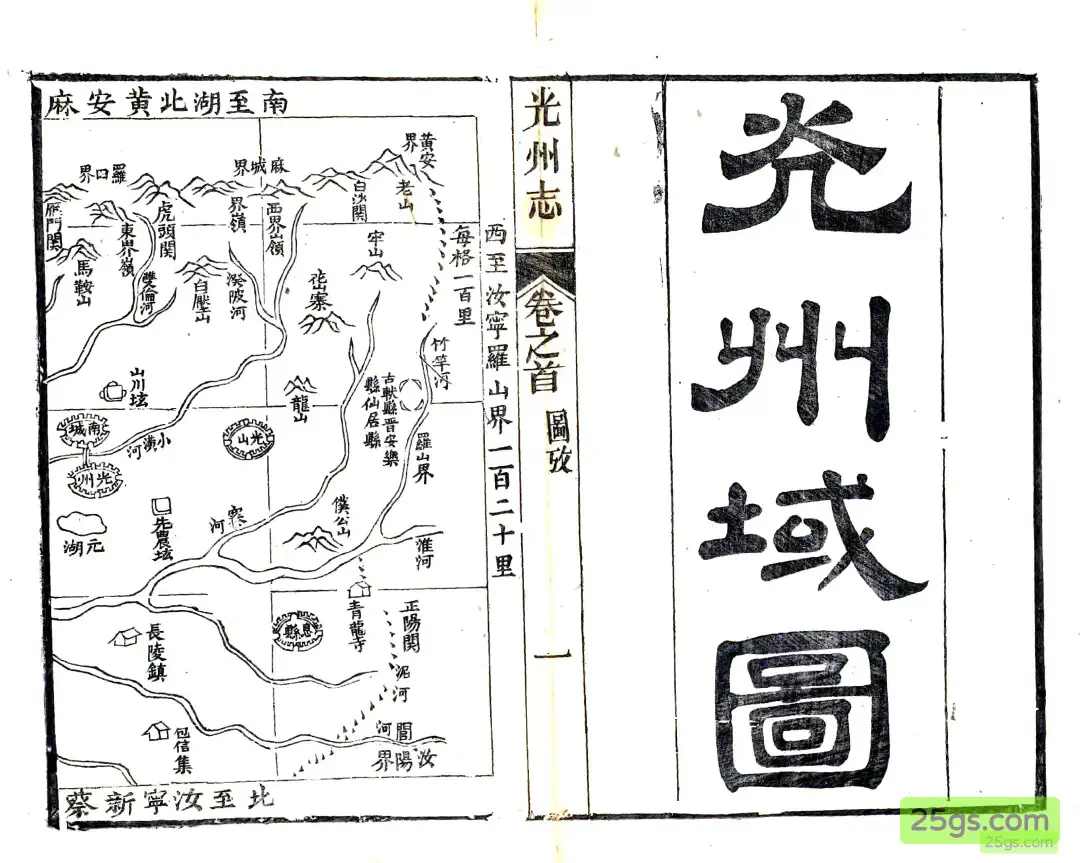 光州域圖
光州志
卷之首
圖攷
一
南至湖北黄安麻
西至汝寧羅山界一百二十里
每格一百里
北至汝寧新蔡
黄安界
老山
白沙関
麻城界
西界岭領
界嶺
羅口界
虎頭関
東界嶺
雁門関
馬鞍山
雙倫河
白壓山
潑陂河
牢山
寨
竹竿河
古軑縣晋安樂
縣仙居縣
羅山界
龍山
光山
山川坛
南城
小潢河
光州
元湖
先農坛
寨河
僕公山
淮河
青龍寺
正陽関
泥河
息縣
長陵鎮
包信集
閭河
汝陽界
25gs.com
25gs.com